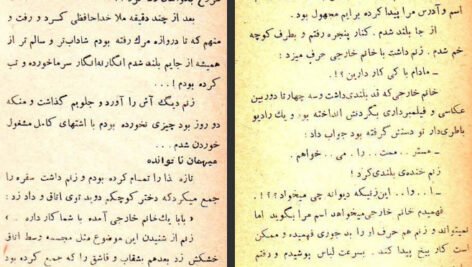 بعد از چند دقیقه ملا خداحافظی کرد و رفت و
منهم که تا دروازه مرك رفته بودم شاداب‌تر و سالم تر از
همیشه از جایم بلند شدم انگارنه‌انگار سرماخورده و تب
کرده بودم ! . . .
زنم دیگ آش را آورد و جلویم گذاشت و منکه
دو روز بود چیزی نخورده بودم با اشتهای کامل مشغول
خوردن شدم . . .
میهمان ناخوانده
تازه غذا را تمام کرده بودم و زنم داشت سفره را
جمع میکرد که دختر کوچکم دوید توی اتاق و داد زد :
« بابا یك خانم خارجی آمده با شما کار داره . . »
زنم از شنیدن این موضوع مثل مجسمه وسط اتاق
خشکش زد بعدهم بشقاب و قاشق را که جمع کرده بود
اسم و آدرس مرا پیدا کرده برایم مجهول بود .
از جا بلند شدم . کنار پنجره رفتم و بطرف کوچه
خم شدم . زنم داشت با خانم خارجی حرف میزد :
ـ مادام با کی کار دارین ؟ ! .
خانم خارجی که قد بلندی داشت و سه چهار تا دوربین
عکاسی و فیلمبرداری بگردنش انداخته بود و یك رادیو
باطری‌دار تو دستش گرفته بود جواب داد :
ـ مستر . . ممت . . را . . می . . خواهم .
زنم خنده‌ی بلندی کرد !
ـ ا . . وا . . این‌زنیکه دیوانه چی میخواد ؟ ! .
فهمیدم خانم خارجی میخواهد اسم مرا بگوید اما
نمیتواند و زنم هم حرف او را بد جوری فهمیده و ممکن
است کار بیخ پیدا کند . بسرعت لباس پوشیدم و رفتم